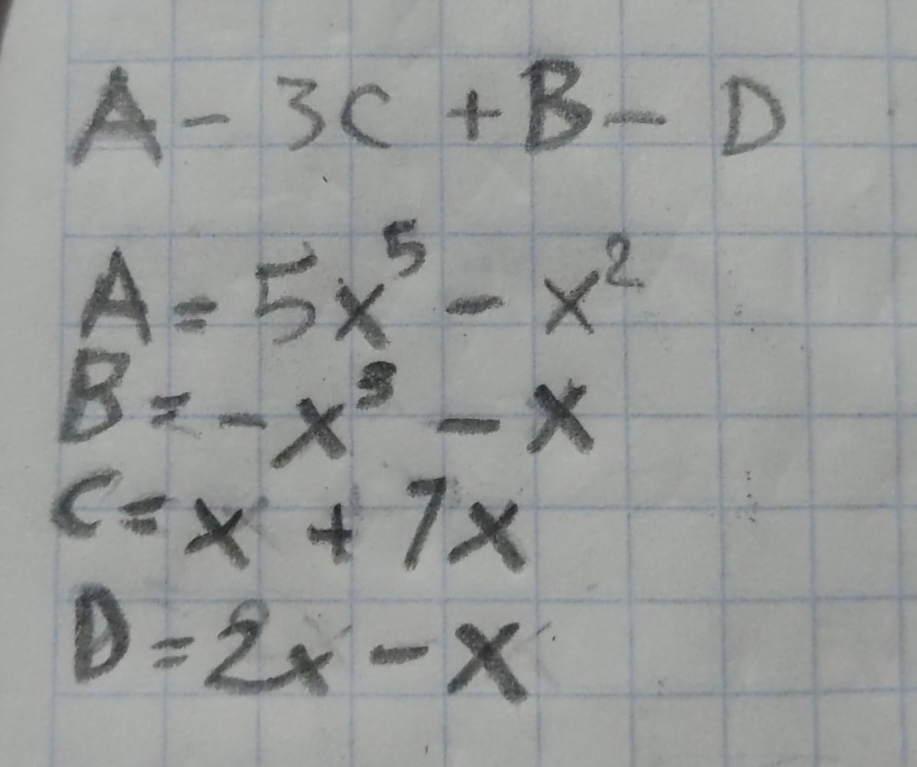 A - 3C + B - D
A = 5x⁵ - x²
B = -x³ - x
C = x + 7x
D = 2x - x